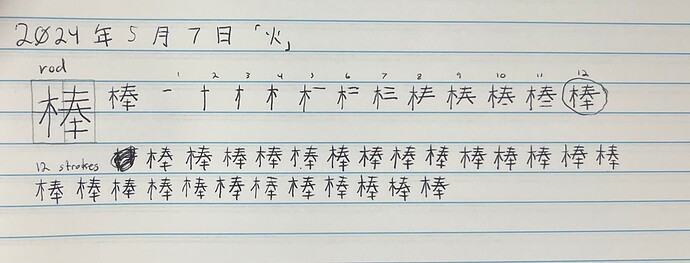 2024年5月7日「火」
rod
1 2 3 4 5 6 7 8 9 10 11 12
棒 棒 一 十 木 棒
12 strokes 棒 棒 棒 棒 棒 棒 棒 棒 棒 棒 棒 棒 棒 棒
棒 棒 棒 棒 棒 棒 棒 棒 棒 棒 棒 棒